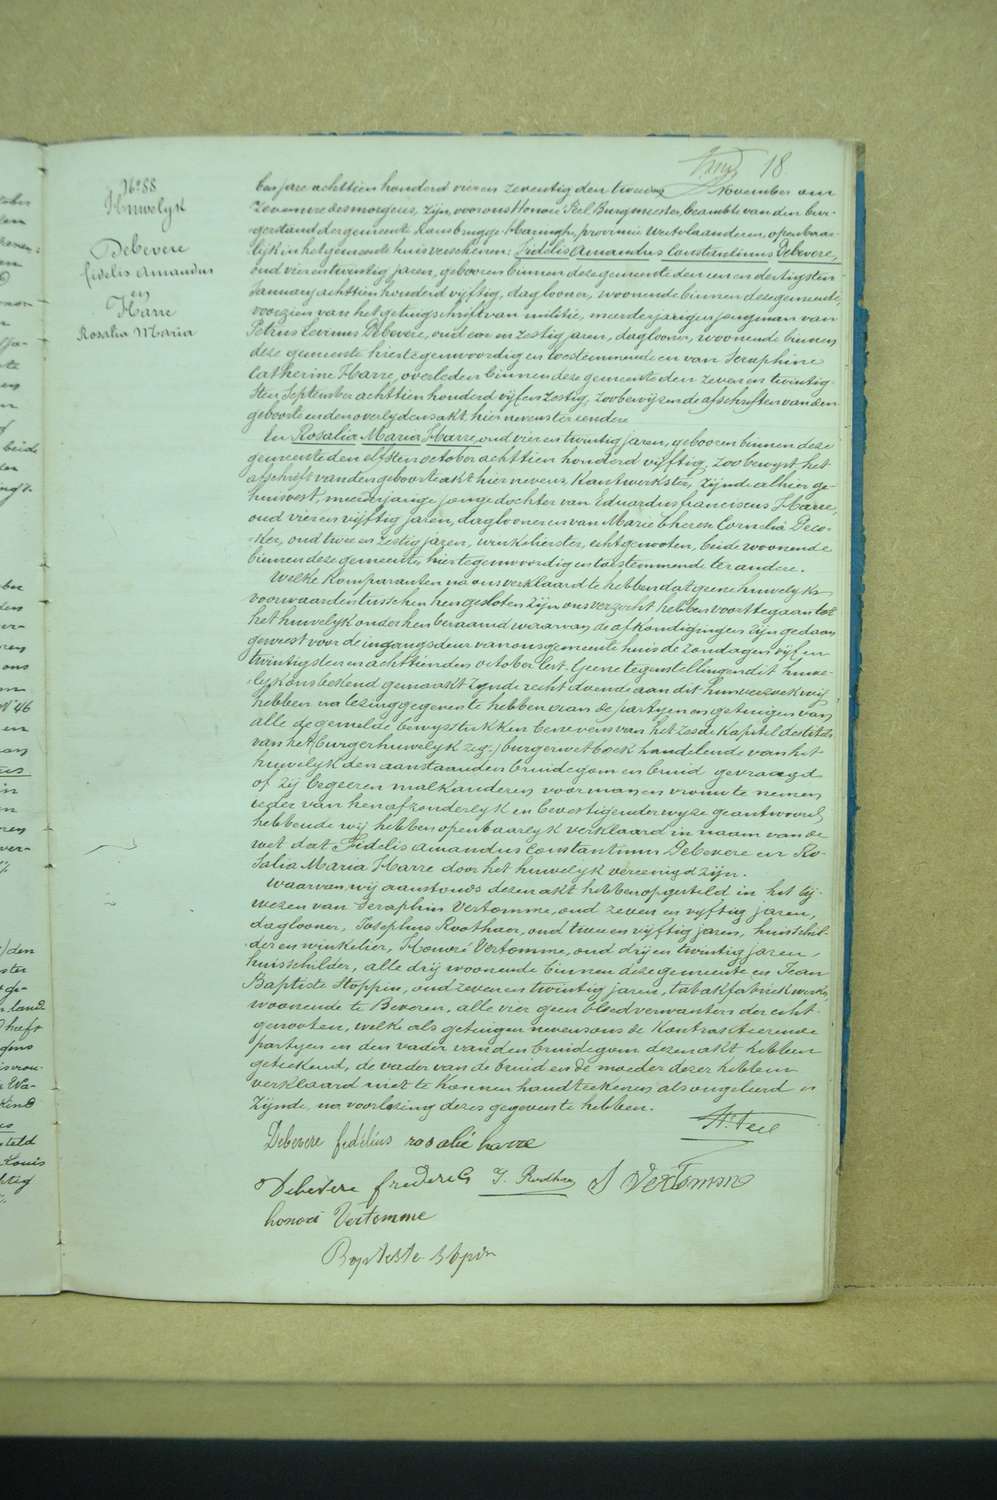 18
N° 88
Huwelyk
Debevere
fidelis Amandus
en
Harre
Rosalia Maria
den jare achttien honderd vier en zeventig den tweeden November om
Zeven ure des morgens, zijn, voor ons Honoré Feel Burgmeester, beambte van den bur-
gerstand der gemeente Rousbrugge-Haringhe, provincie Westvlaanderen, openbaar-
lijk in het gemeente huis verschenen: Fidelis Amandus Constantinus Debevere,
oud vier en twintig jaren, geboren binnen deze gemeente den een en dertigsten
January achttien honderd vijftig, daglooner, woonende binnen deze gemeente,
voorzien van het getuigschrift van militie, meerderjarigen jongman van
Petrus Levinus Debevere, oud een en zestig jaren, daglooner, woonende binnen
deze gemeente hier tegenwoordig en toestemmende en van Seraphine
Catherine Harre, overleden binnen deze gemeente den zeven en twintig-
sten September achttien honderd vijf en zestig, zoo bewijzen de afschriften van den
geboorte en den overlydensakt, hier nevens ter eendere
En Rosalia Maria Harre, oud vier en twintig jaren, geboren binnen deze
gemeente den elfsten october achttien honderd vijftig, zoo bewyst het
afschrift van den geboorteakt hier nevens, Kantwerkster, zijnde alhier ge-
huisvest, meerderjarige jonge dochter van Eduardus franciscus Harre,
oud vier en vijftig jaren, daglooner en van Marie Theresa Cornelia Deco-
ker, oud twee en zestig jaren, winkelierster, echtgenooten, beide woonende
binnen deze gemeente, hier tegenwoordig en toestemmende ter andere.
Welke Komparanten na ons verklaard te hebben dat geene huwelyks
voorwaarden tusschen hen gesloten zijn ons verzocht hebben voort te gaan tot
het huwelijk onder hen beraamd waarvan de afkondigingen zijn gedaan
geweest voor de ingangsdeur van ons gemeente huis de zondagen vijf en
twintigsten en achttienden october lest. Geene tegenstellingen dit huwe-
lyk ons bekend gemaakt zynde recht doende aan dit hun verzoek wij
hebben na lezing gegeven te hebben aan de partyen en getuigen van
alle de gemelde bewystukken benevens van het zesde Kapitel des titels
van het (burgerhuwelyk zeg:) burgerwetboek handelende van het
huwelyk den aanstaanden bruidegom en bruid gevraagd
of zij begeeren malkanderen voor man en vrouw te nemen
ieder van hen afzonderlyk en bevestigender wyze geantwoord
hebbende wij hebben openbaarlyk verklaard in naam van de
wet dat Fidelis Amandus Constantinus Debevere en Ro-
salia Maria Harre door het huwelyk vereenigd zijn.
Waarvan wij aanstonds dezen akt hebben opgesteld in het bij-
wezen van Seraphin Vertomme, oud zeven en vijftig jaren,
daglooner, Josephus Roothaer, oud twee en vijftig jaren, huisschil-
der en winkelier, Honoré Vertomme, oud drij en twintig jaren,
huisschilder, alle drij woonende binnen deze gemeente en Jean
Baptiste Stoppin, oud zeven en twintig jaren, tabakfabriekwerker
woonende te Beveren, alle vier geen bloedverwanten der echt-
genooten, welke als getuigen nevens ons de Kontracteerende
partyen en den vader van den bruidegom dezen akt hebben
geteekend, de vader van de bruid en de moeder dezer hebben
verklaard niet te Konnen handteekenen als ongeleerd
zijnde, na voorlezing dezes gegeven te hebben.
H. Feel
Debevere fidelius rosalie harre
Debevere frederic J. Roothaer S Vertomme
honoré Vertomme
Baptiste Stopin